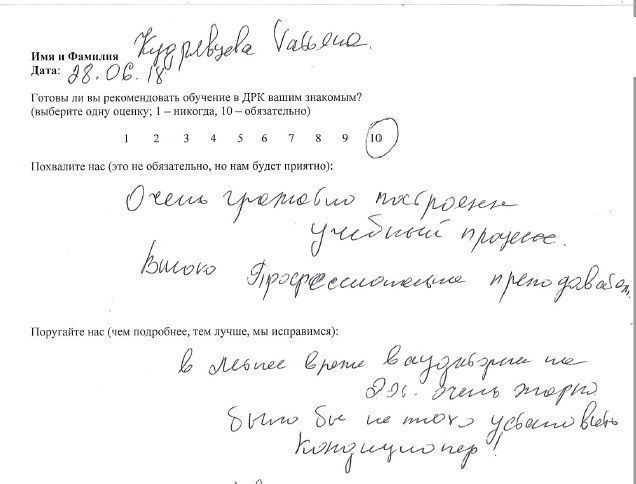 Имя и Фамилия Кудрявцева Татьяна.
Дата: 28.06.18
Готовы ли вы рекомендовать обучение в ДРК вашим знакомым?
(выберите одну оценку; 1 – никогда, 10 – обязательно)
1 2 3 4 5 6 7 8 9 10
Похвалите нас (это не обязательно, но нам будет приятно):
Очень грамотно построен
учебный процесс.
Высоко профессиональные преподаватели,
Поругайте нас (чем подробнее, тем лучше, мы исправимся):
в летнее время в аудитории на
эт. очень жарко
было бы не плохо установить
кондиционер!